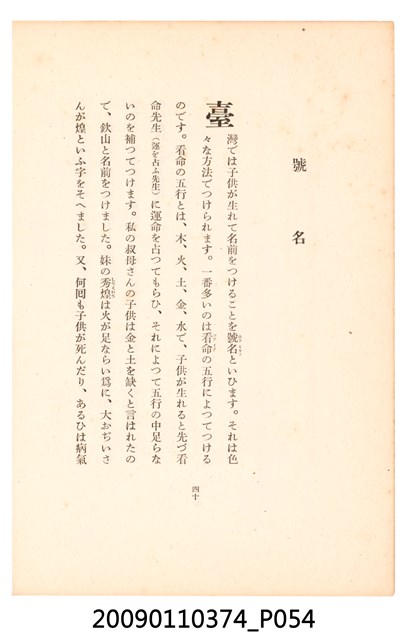 號名
臺灣では子供が生れて名前をつけることを號名といひます。それは色
々な方法でつけられます。一番多いのは看命の五行によつてつける
のです。看命の五行とは、木、火、土、金、水で、子供が生れると先づ看
命先生（運を占ふ先生）に運命を占つてもらひ、それによつて五行の中足らな
いのを補つてつけます。私の叔母さんの子供は金と土を缺くと言はれたの
で、欽山と名前をつけました。妹の秀煌は火が足ならい爲に、大おぢいさ
んが煌といふ字をそへました。又、何囘も子供が死んだり、あるひは病氣
四十
20090110374_P054